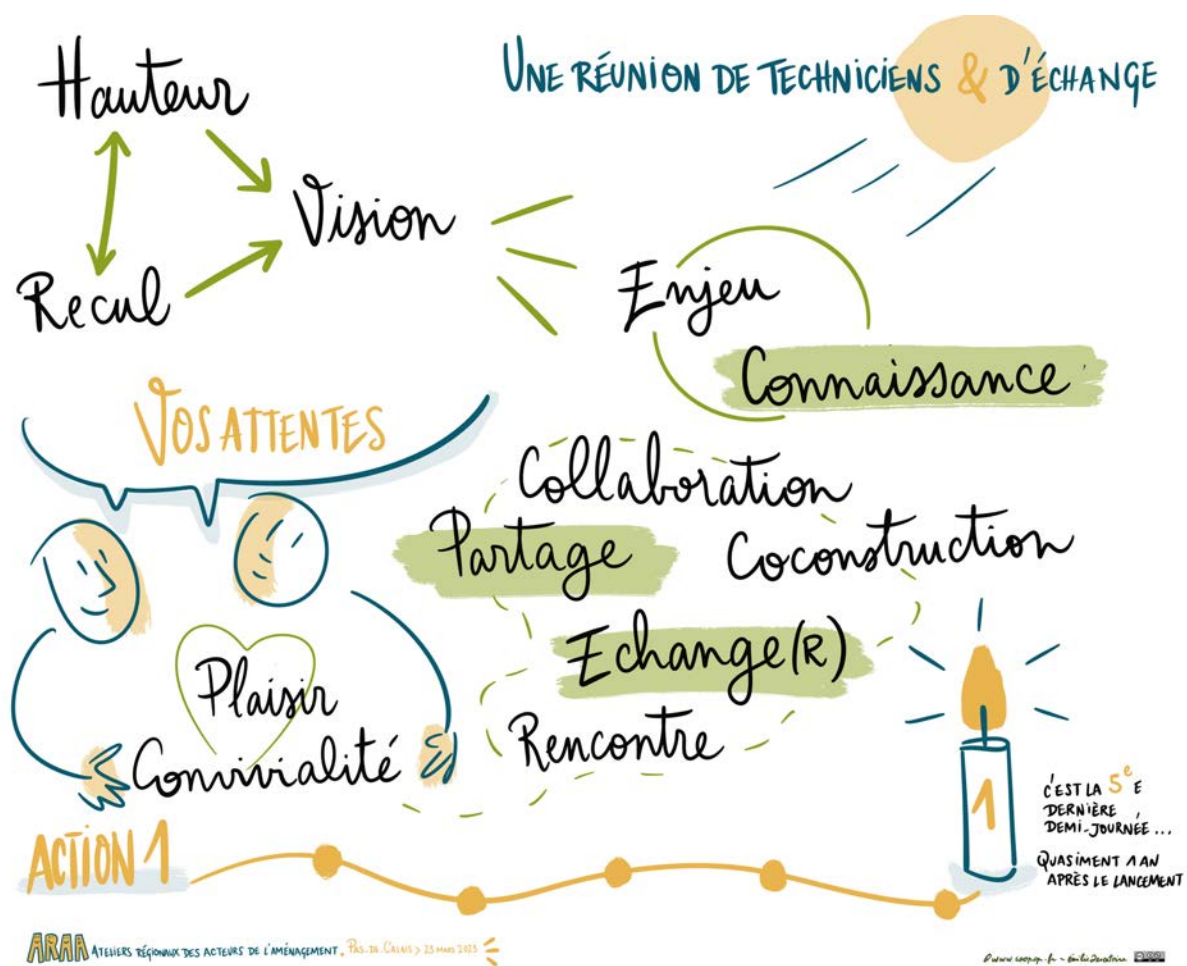 Hauteur
UNE RÉUNION DE TECHNICIENS & D'ÉCHANGE
Vision
Recul
Enjeu
Connaissance
VOS ATTENTES
Collaboration
Partage
Coconstruction
Echange(R)
Plaisir
Rencontre
Convivialité
1
C'EST LA 5e E
DERNIÈRE
DEMI-JOURNÉE...
QUASIMENT 1 AN
APRÈS LE LANCEMENT
ACTION 1
ARAA ATELIERS RÉGIONAUX DES ACTEURS DE L'AMÉNAGEMENT. PAS-DE-CALAIS > 23 MARS 2023